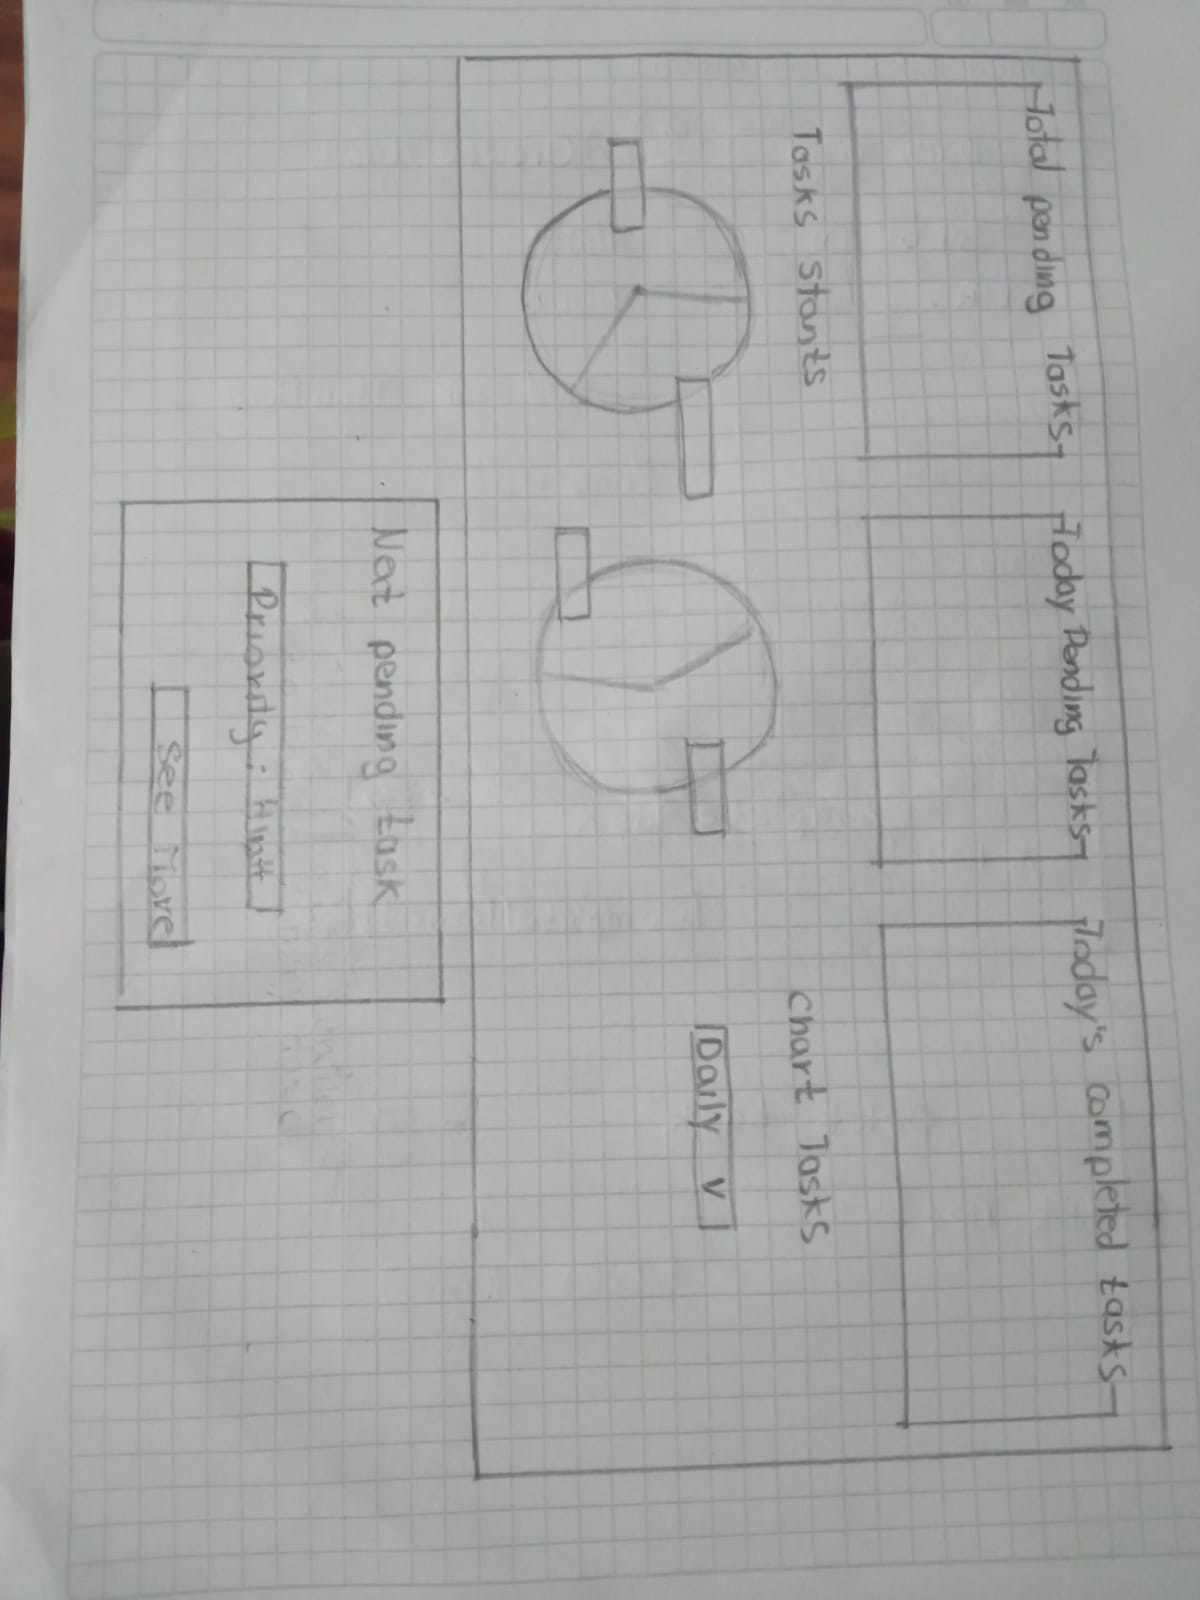 Total pending Tasks
Today Pending Tasks
Today's completed tasks
Tasks stants
Chart Tasks
Daily v
Next pending task
Priority:
See More